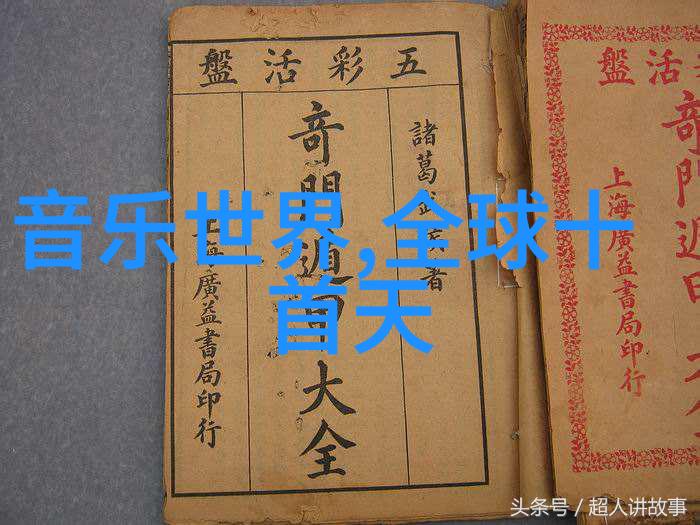 五彩活盤
諸葛武侯著
奇門遁甲大全
上海廣益書局印行
活盤
奇門遁甲大全
上海廣益書局印行
音乐世界,全球十
首天
头条号 / 超人讲故事